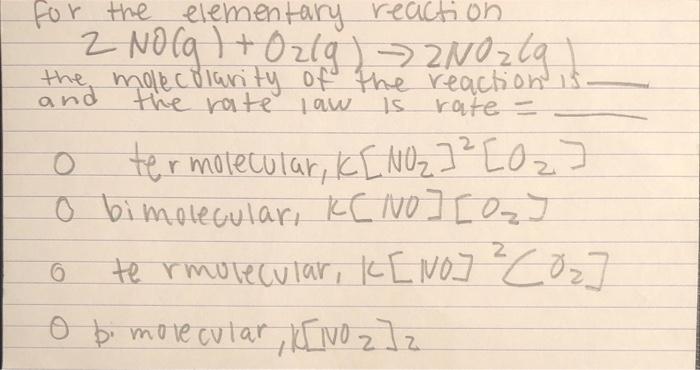 for the elementary reaction
2 NO(g) + O2(g) → 2NO2(g)
the molecularity of the reaction is ___
and the rate law is rate = ___
O termolecular, K[NO2]²[O2]
O bimolecular, K[NO][O2]
O termolecular, K[NO]²[O2]
O bimolecular, K[NO2]2